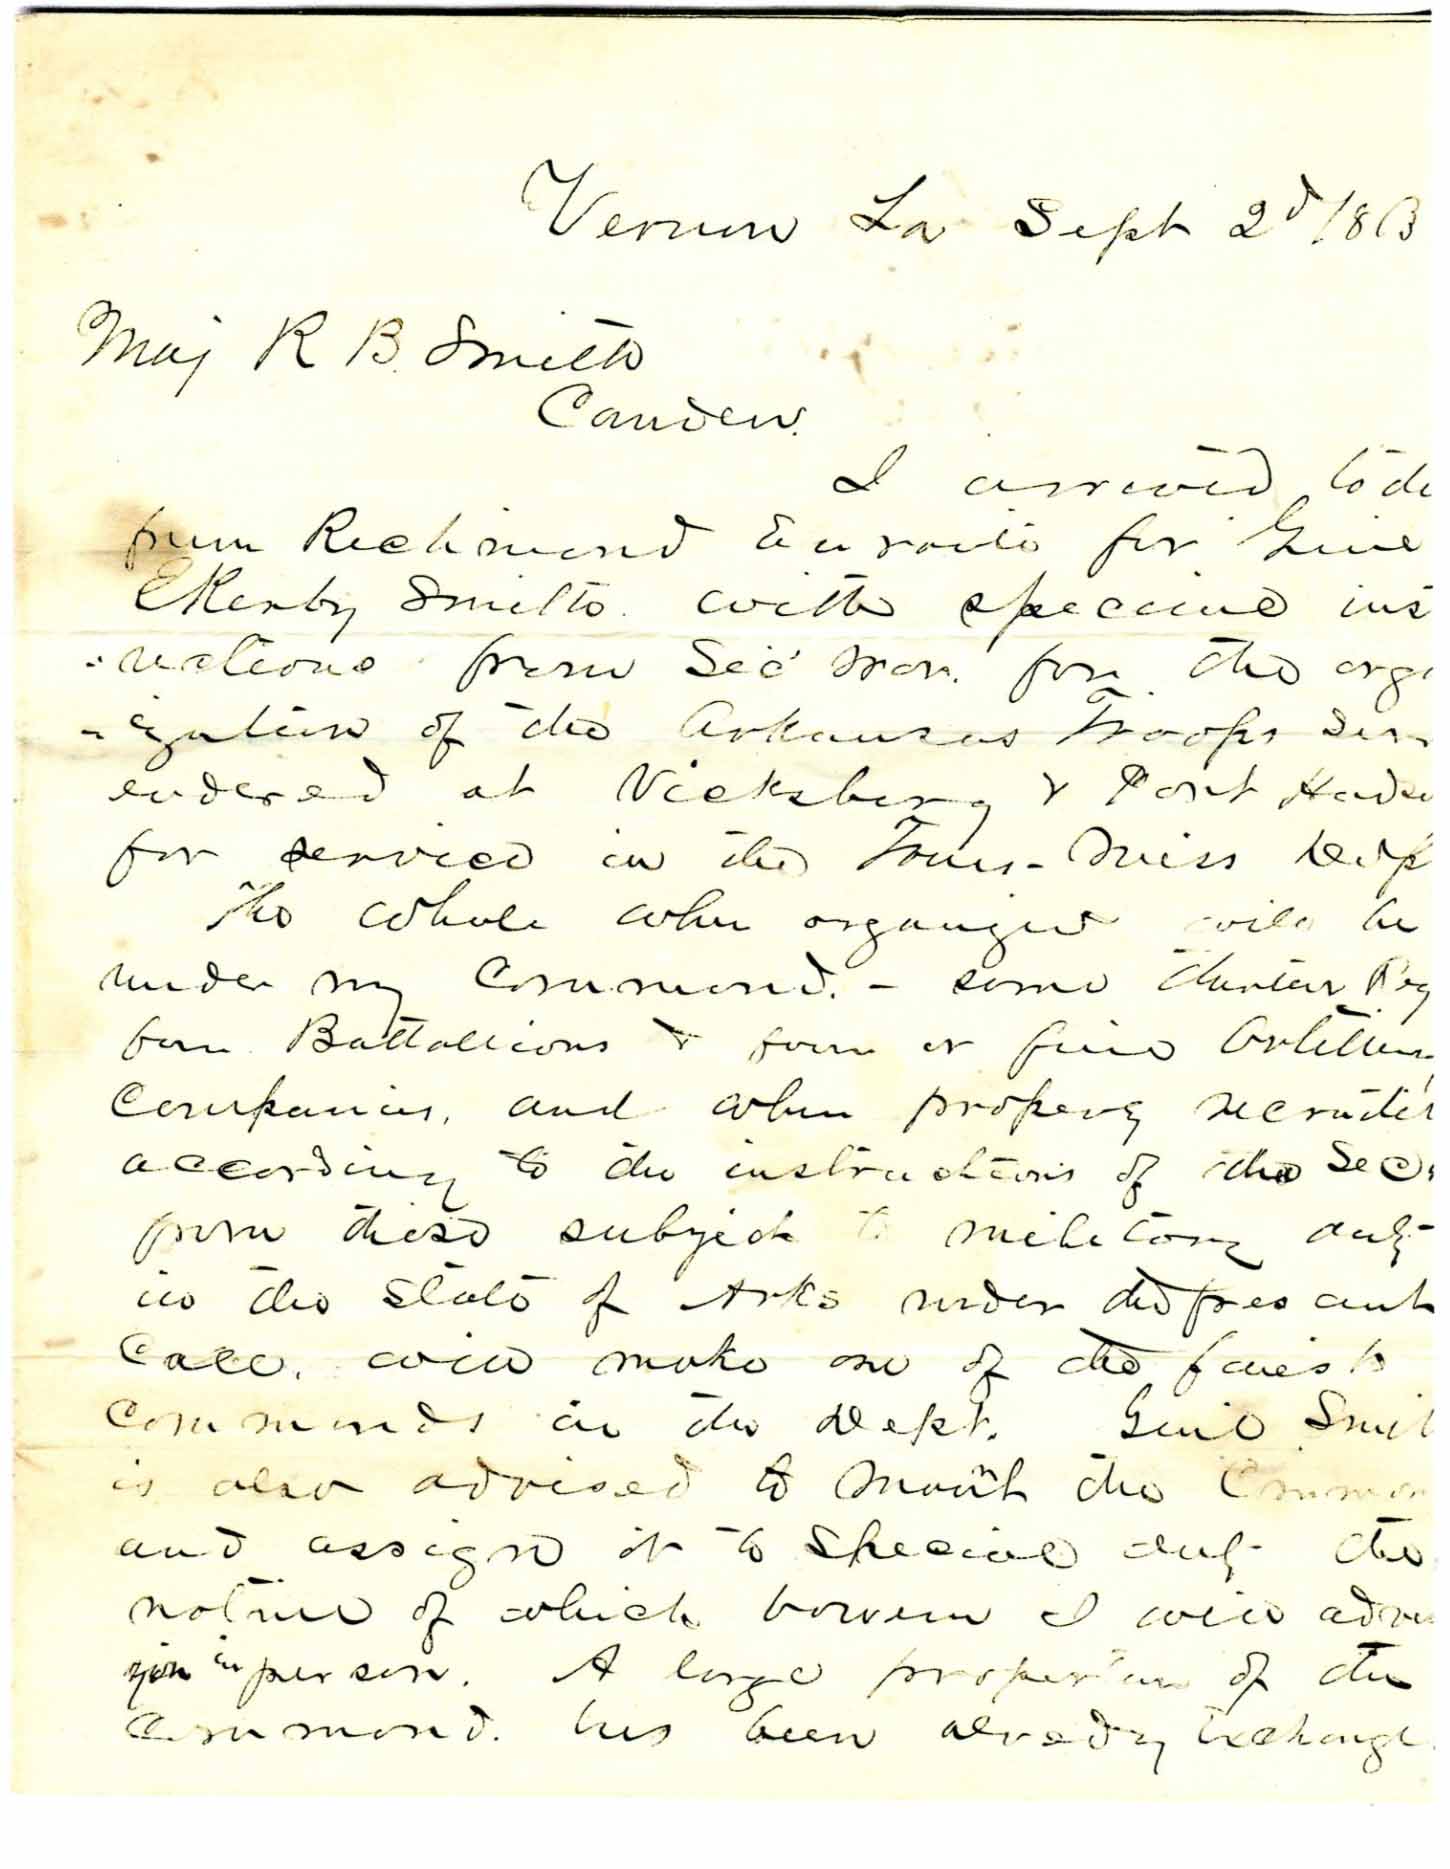 Vernon La Sept 2d /863
Maj R B. Smith
Camden.
I arrived tod
from Richmond Enroute for Genl
E Kerby Smith. with special ins
-ructions from Sec War. for the orga
-ization of the Arkansas Troops Surr
endered at Vicksburg & Port Huds
for service in the Trans-Miss Dep
The whole when organized will be
under my Command. - some thirteen Reg
four Battallions & four or five Artillery
Companies, and when propery recruited
according to the instructions of the Sec
from those subject to military duty
in the State of Arks under the present
Call. will make one of the finest
commands in the Dept. Genl Smit
is also advised to Mount the Comman
and assign it to Special duty the
nature of which however I will advi
you in person. A large proportion of the
Command. has been already Exchange